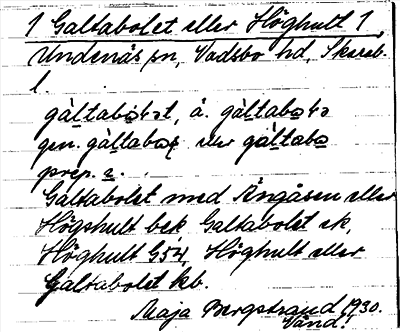 1 Galtabolet eller Höghult 1,
Undenäs sn, Vadsbo hd, Skarab.
l.
gàltabot, ä. gàltabo
gen. gàltabos eller gàltabo
prep. a.
Galtabolet med Ängåsen eller
Högshult bek Galtabolet ek,
Höghult G54, Höghult eller
Galtabolet kb.
Maja Bergstrand 1930.
Vänd.